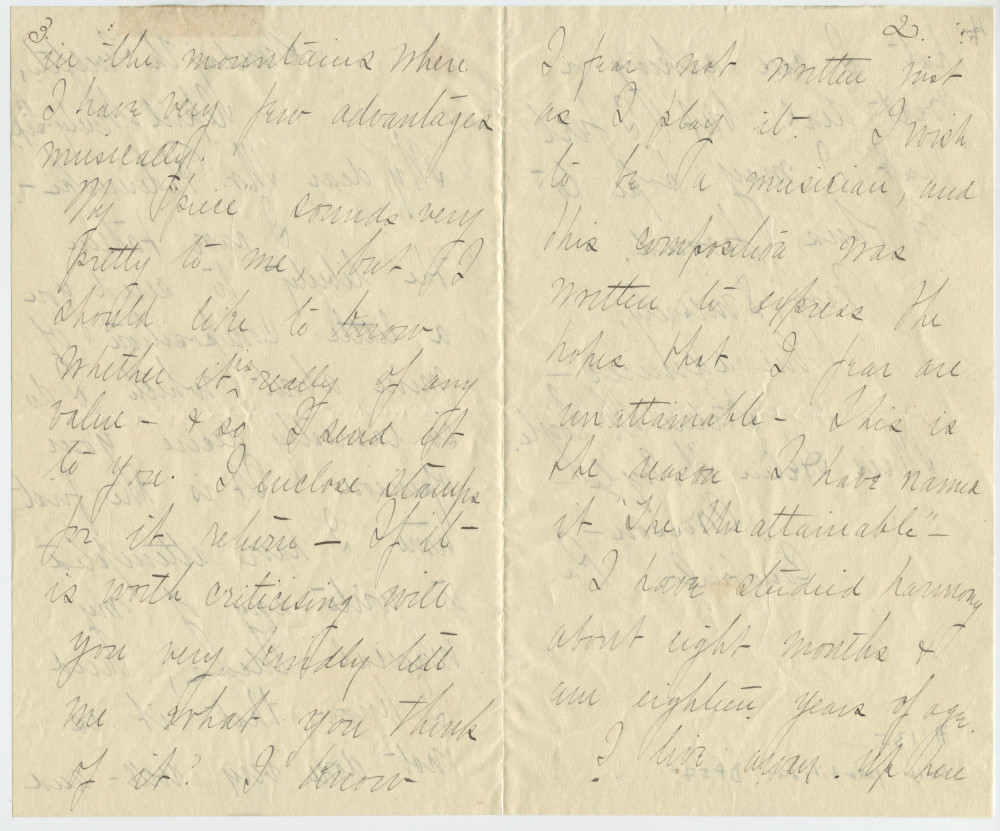 2.
I fear not written just
as I play it. I wish
to be a musician, and
this composition was
written to express the
hopes that I fear are
unattainable - This is
the reason I have named
it "The Unattainable" -
I have studied harmony
about eight months &
am eighteen years of age.
I live away up here
3.
in the mountains where
I have very few advantages
musically.
My "piece" sounds very
pretty to me but I
should like to know
whether it is really of any
value - & so I send it
to you. I enclose stamps
for it return - If it
is worth criticising will
you very kindly tell
me what you think
of it? I know